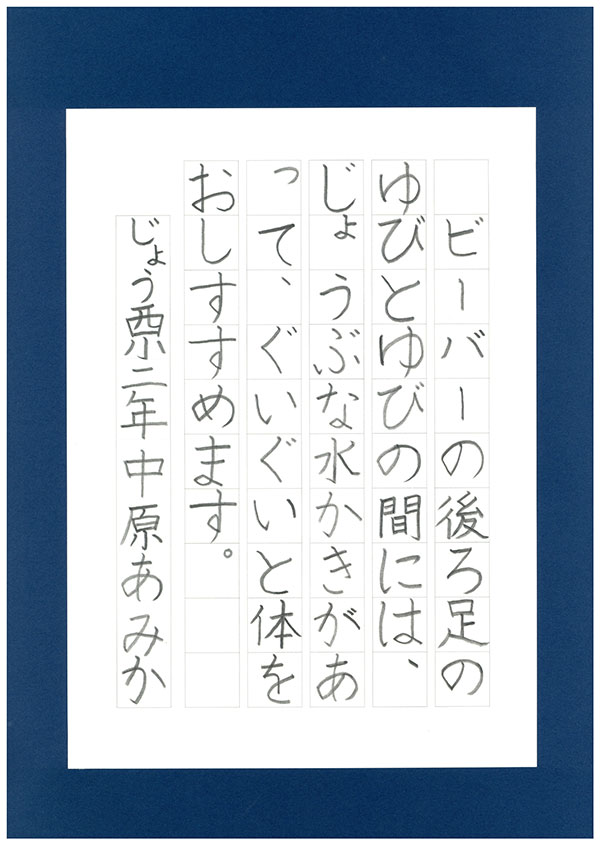 ビーバーの後ろ足の
ゆびとゆびの間には、
じょうぶな水かきがあ
って、ぐいぐいと体を
おしすすめます。
じょう西小二年中原あみか